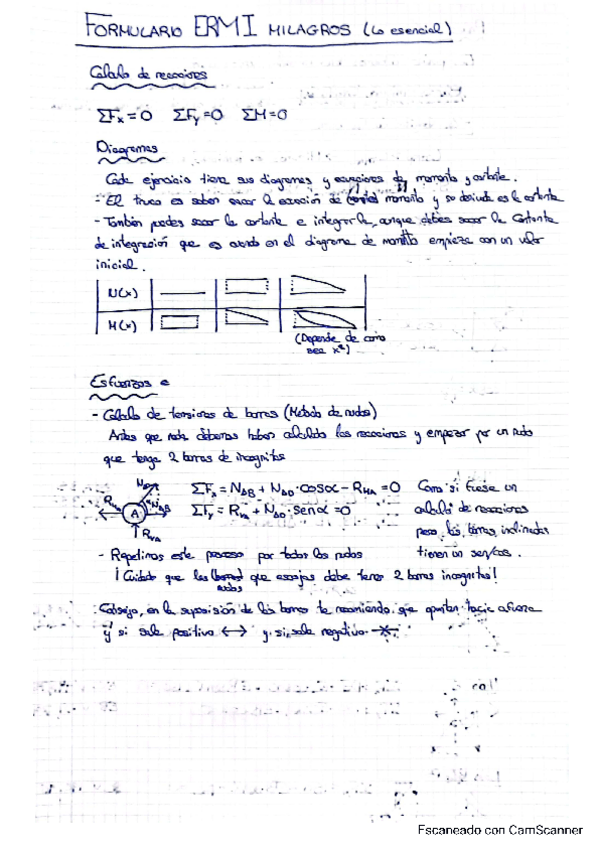 FORMULARIO ERMI MILAGROS (Lo esencial)
Cálculo de reacciones
ΣFx=0 ΣFy=0 ΣM=0
Diagramas
Cada ejercicio tiene sus diagramas y ecuaciones de momento y cortante.
- El truco es saber sacar la ecuación de momento y su derivada es la cortante
- También puedes sacar la cortante e integrarla, aunque debes sacar la constante
de integración que es cuando en el diagrama de momento empieza con un valor
inicial.
N(x)
M(x)
(Depende de como
sea x²)
Esfuerzos
- Cálculo de tensiones de barras (Método de nudos)
Antes que nada deberías haber calculado las reacciones y empezar por un nudo
que tenga 2 barras de incógnitas
ΣFx = NAB + NAD · cosα - RHA = 0 Como si fuese un
ΣFy = RVA + NAD · senα = 0 cálculo de reacciones
A RVA pero las barras inclinadas
- Repetimos este proceso por todos los nudos tienen un sen/cos.
¡Cuidado que los nudos que escojas debe tener 2 barras incógnitas!
Consejo, en la suposición de las barras te recomiendo que apuntan hacia afuera
y si sale positivo ↔ y si sale negativo
Escaneado con CamScanner